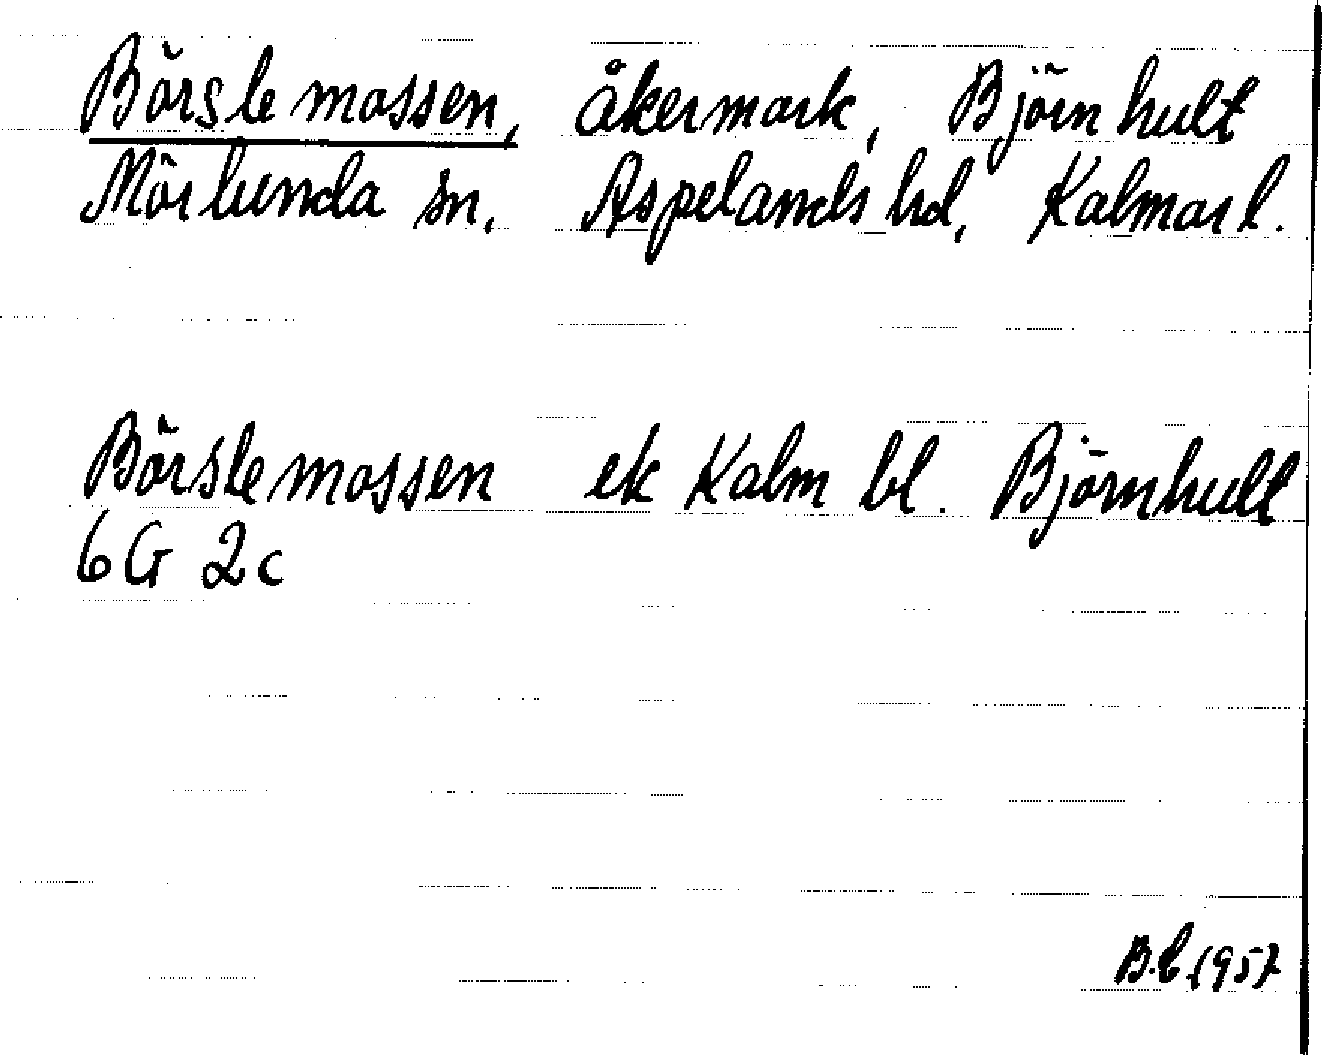 Börslemossen, åkermark, Björnhult
Mörlunda sn, Aspelands hd, Kalmar l.
Börslemossen ek Kalm bl. Björnhult
6G 2c
1957